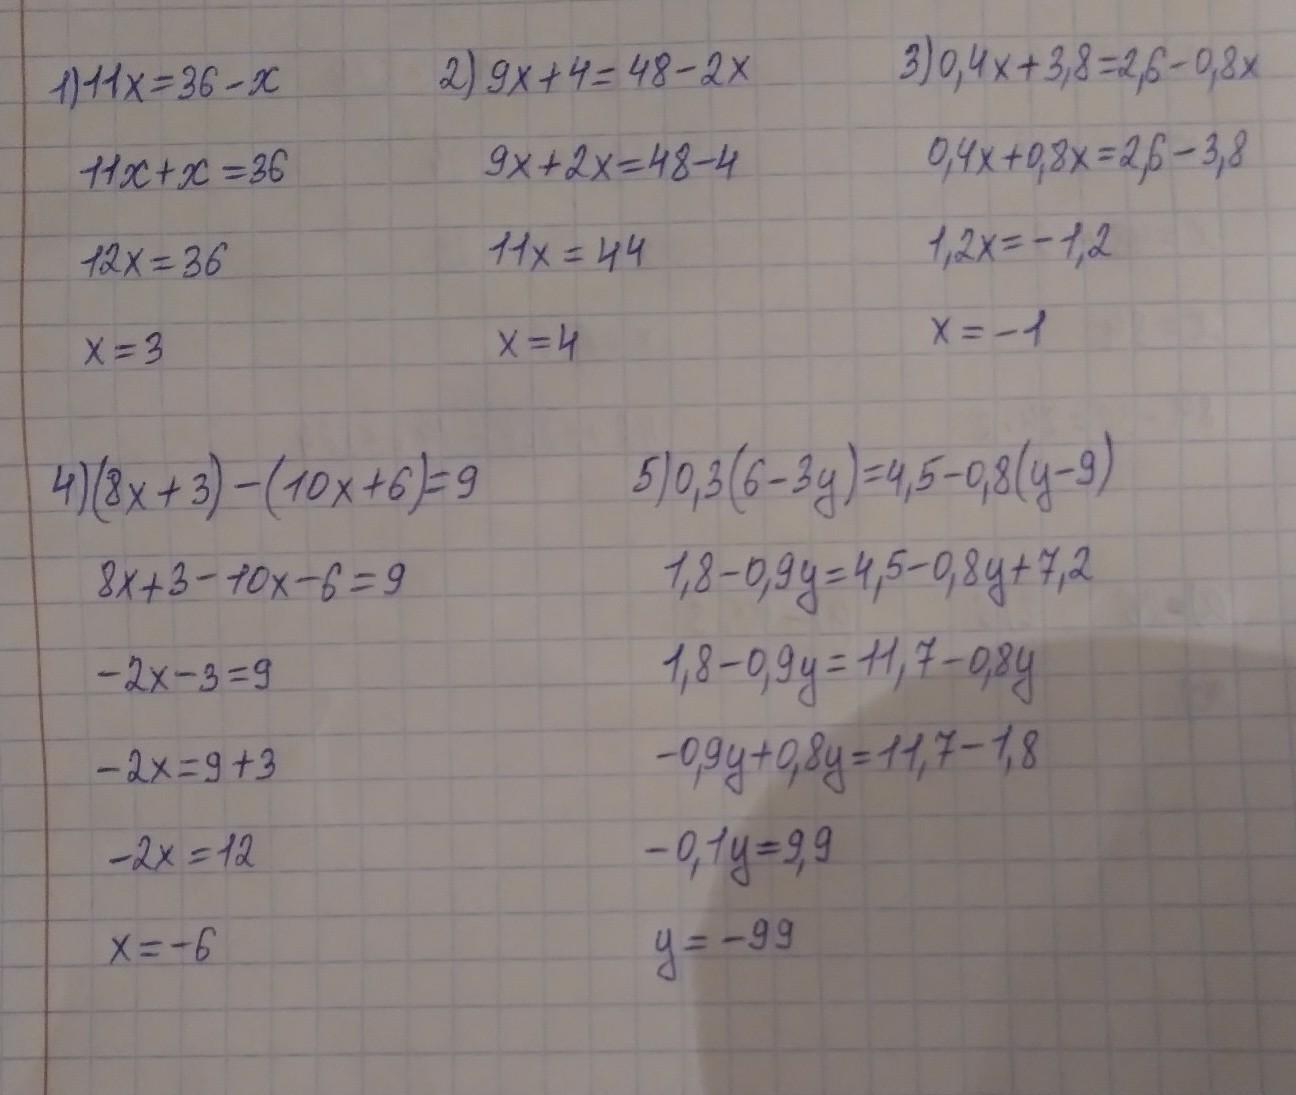 1) 11x=36-x
11x+x=36
12x=36
x=3
2) 9x+4=48-2x
9x+2x=48-4
11x=44
x=4
3) 0,4x+3,8=2,6-0,8x
0,4x+0,8x=2,6-3,8
1,2x=-1,2
x=-1
4) (8x+3)-(10x+6)=9
8x+3-10x-6=9
-2x-3=9
-2x=9+3
-2x=12
x=-6
5) 0,3(6-3y)=4,5-0,8(y-9)
1,8-0,9y=4,5-0,8y+7,2
1,8-0,9y=11,7-0,8y
-0,9y+0,8y=11,7-1,8
-0,1y=9,9
y=-99